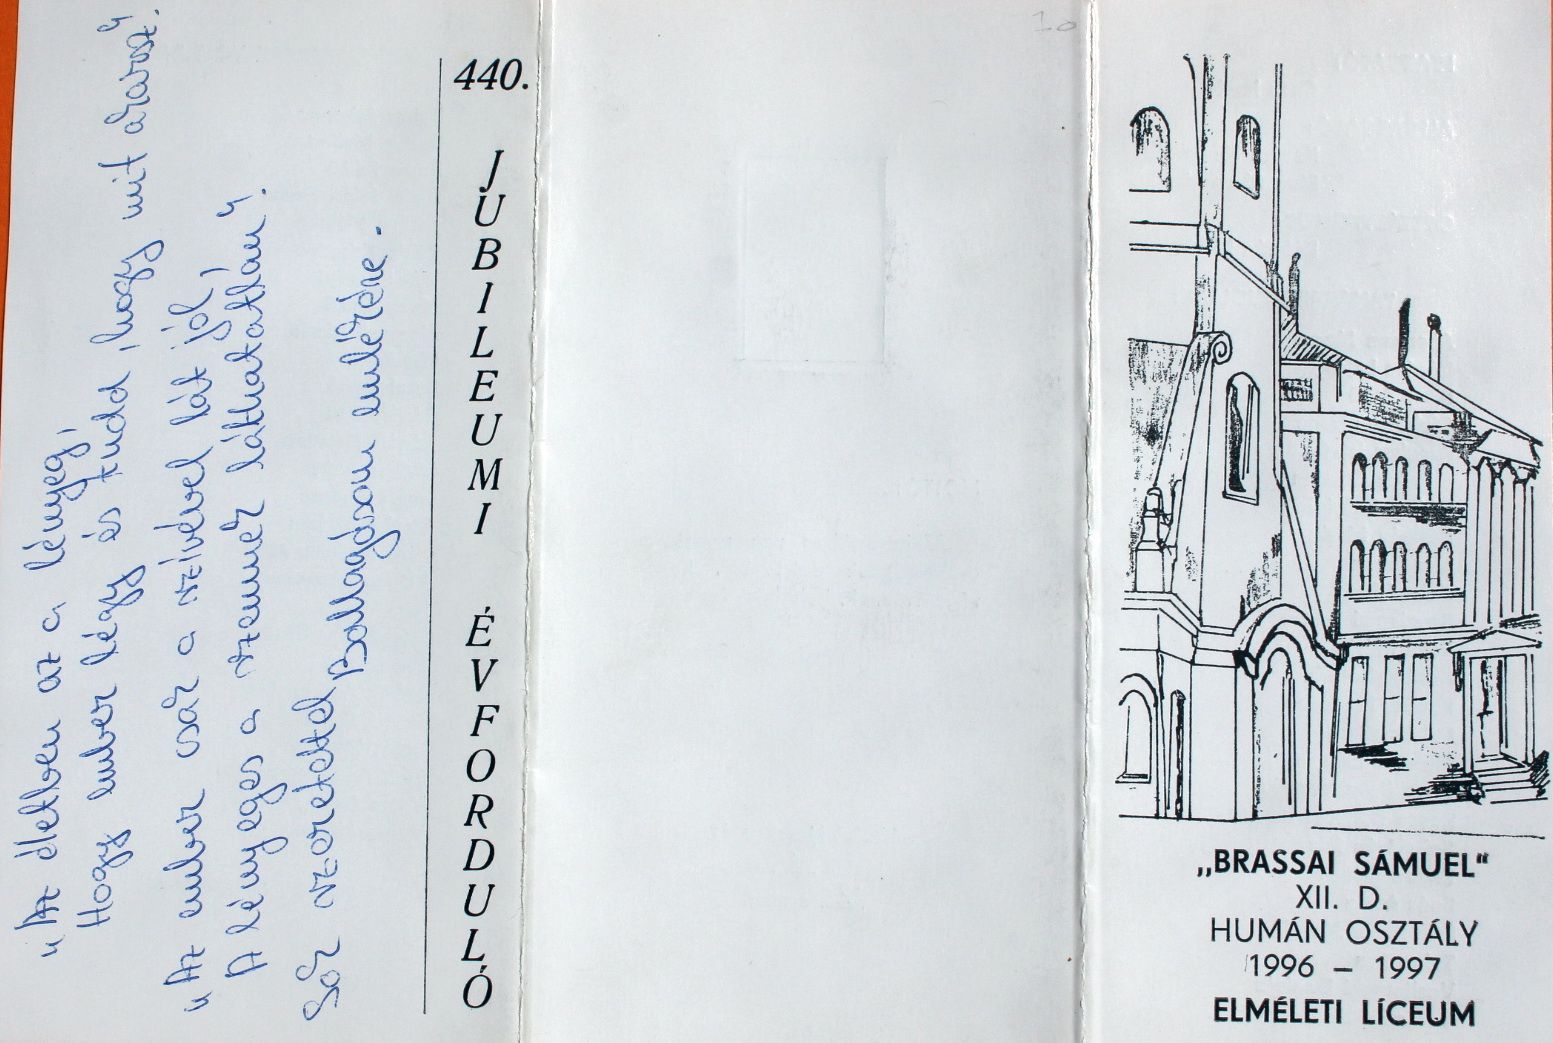 „Az életben az a lényeg,
Hogy ember légy és tudd, hogy mit akarsz".
„Az ember csak a szívével lát jól,
A lényeges a szemnek láthatatlan".
Sok szeretettel Ballagásom emlékére.
440. JUBILEUMI ÉVFORDULÓ
10
„BRASSAI SÁMUEL“
XII. D.
HUMÁN OSZTÁLY
1996 – 1997
ELMÉLETI LÍCEUM